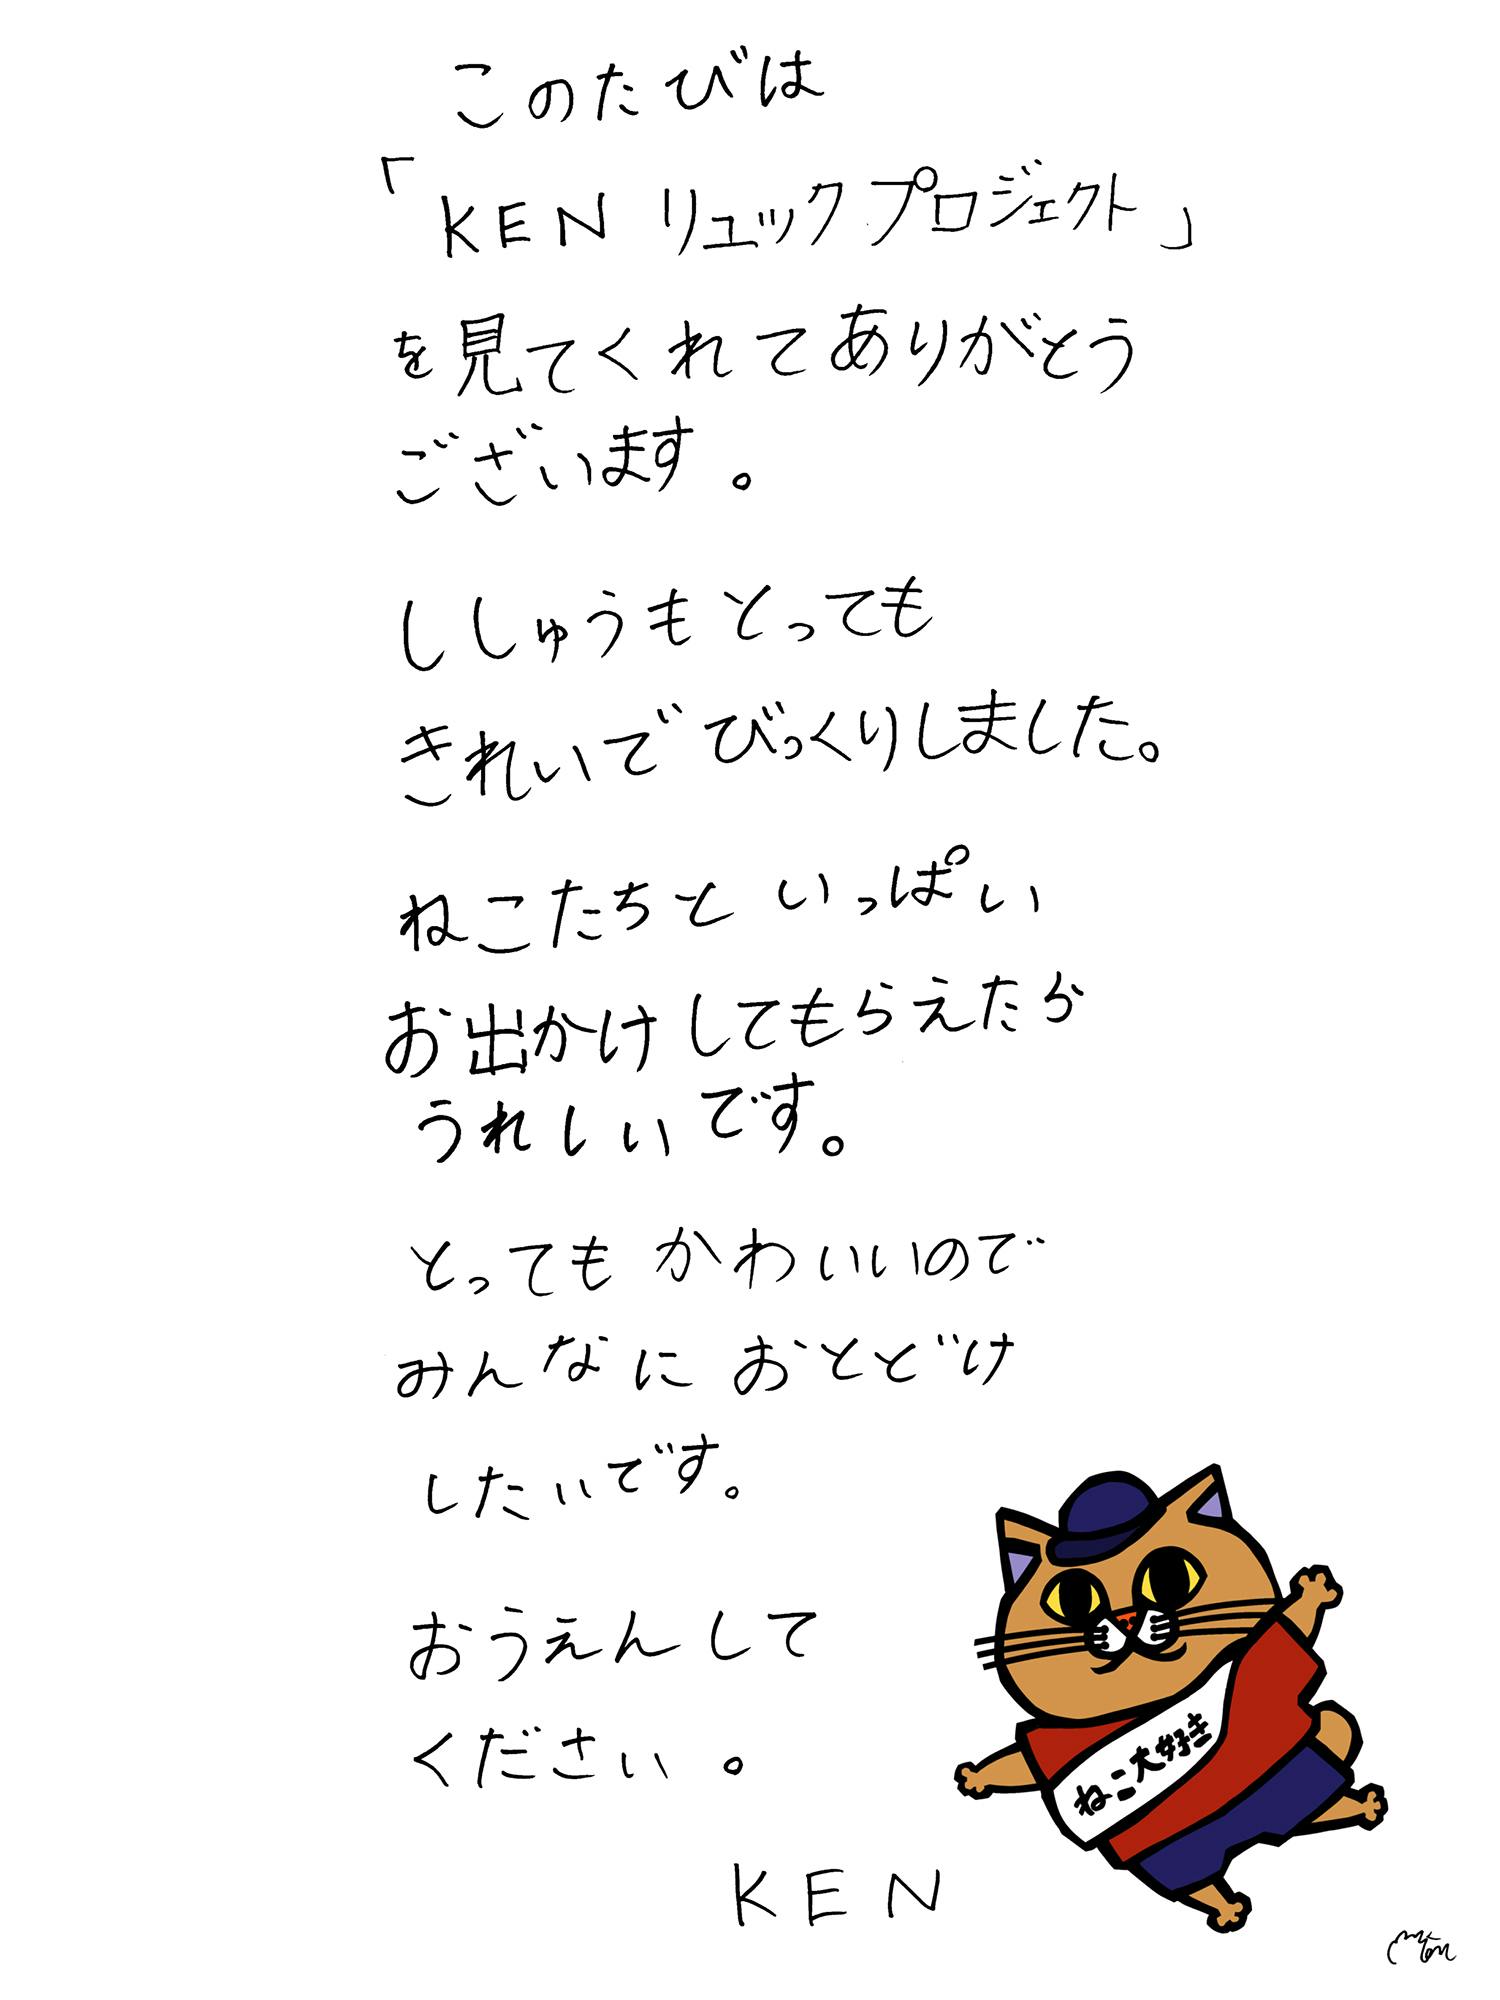 このたびは
「KEN リュックプロジェクト」
を見てくれてありがとう
ございます。
ししゅうもとっても
きれいでびっくりしました。
ねこたちと いっぱい
お出かけしてもらえたら
うれしいです。
とっても かわいいので
みんなに おとどけ
したいです。
おうえんして
ください。
KEN
ねこ大好き